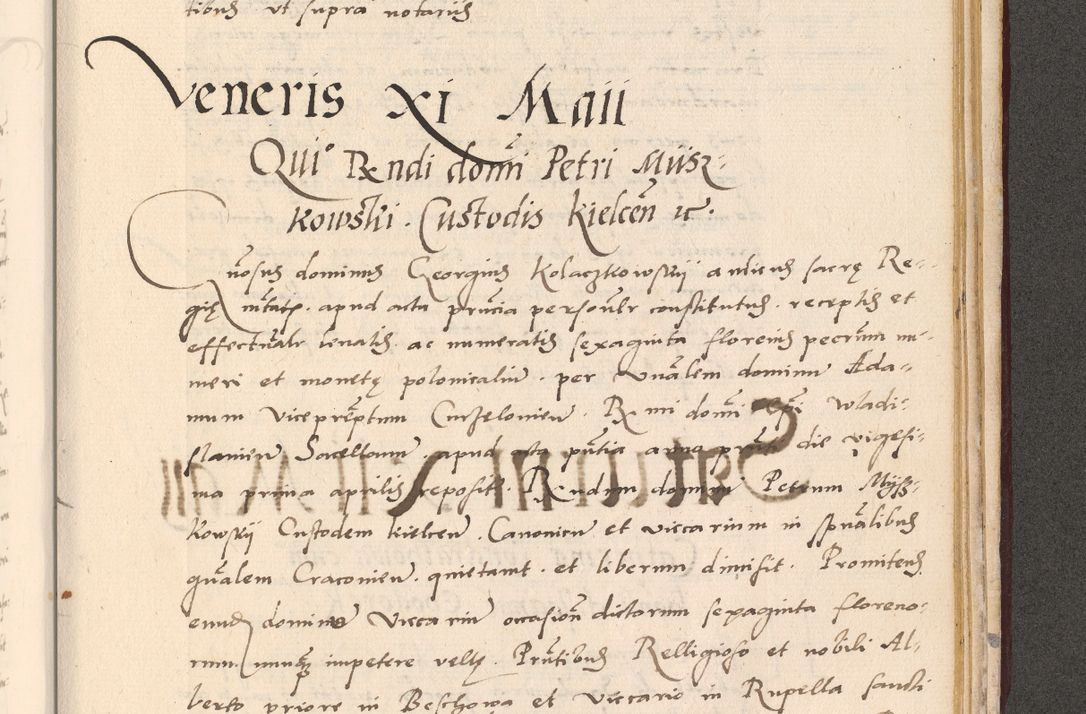 tionis ut supra notariis
Veneris XI Maii
Quit Rndi domi Petri Misz-
kowskii. Custodis kielcen etc.
Generosus dominus Georgius Kolaczkowskij aulicus sacrę Re-
gię mtatis. apud acta pncia personlr constitutus. receptis et
effectualr levatis. ac numeratis sexaginta florenis pecrum nu-
meri et monetę polonicalium. per vnalem dominum Ada-
mum viceprptum Curzelonien. Rmi domi epi wladi-
slavien Sacellanum. apud acta pntia anno pnti die vigesi-
ma prima aprilis repositis. Rndum dominum Petrum Mysz-
kowskij Custodem kielcen. Canonicum et viccarium in spualibus
gnalem Cracovien. quietavit. et liberum dimisit. Promittens
eundem dominum viccarium occasione dictorum sexaginta floreno-
rum nunquam impetere velle. Pntibus Relligioso et nobili Al-
berto priore in Beschowa et viccario in Rupella sancti